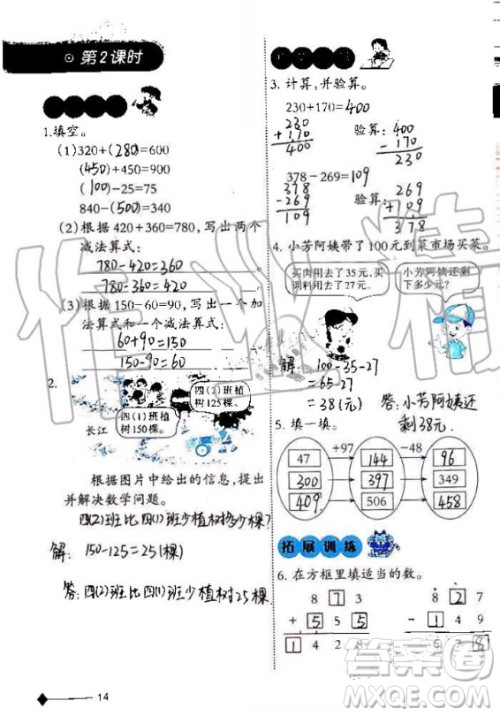 第2课时
1.填空。
(1)320+(280)=600
(450)+450=900
(100)-25=75
840-(500)=340
(2)根据420+360=780，写出两个
减法算式：
780-420=360
780-360=420
(3)根据150-60=90，写出一个加
法算式和一个减法算式：
60+90=150
150-90=60
2.
四(2)班植
树125棵。
四(1)班植
树150棵。
长江
根据图片中给出的信息，提出
并解决数学问题。
四(2)班比四(1)班少植树多少棵？
解：150-125=25(棵)
答：四(2)班比四(1)班少植树25棵。
14
3. 计算，并验算。
230+170=400
230
+170
400
验算：400
-170
230
378-269=109
378
-269
109
验算：269
+109
378
4. 小芳阿姨带了100元到菜市场买菜。
买肉用去了35元，买
调料用去了27元。
小芳阿姨还剩
下多少元？
解：100-35-27
=65-27
=38(元)
答：小芳阿姨还
剩38元。
5. 填一填。
+97 -48
47 144 96
300 397 349
409 506 458
拓展训练
6. 在方框里填适当的数。
8 7 3
+ 5 5 5
1 4 2 8
8 2 7
- 1 4 9
6 7 8
答案圈
MXQE.COM